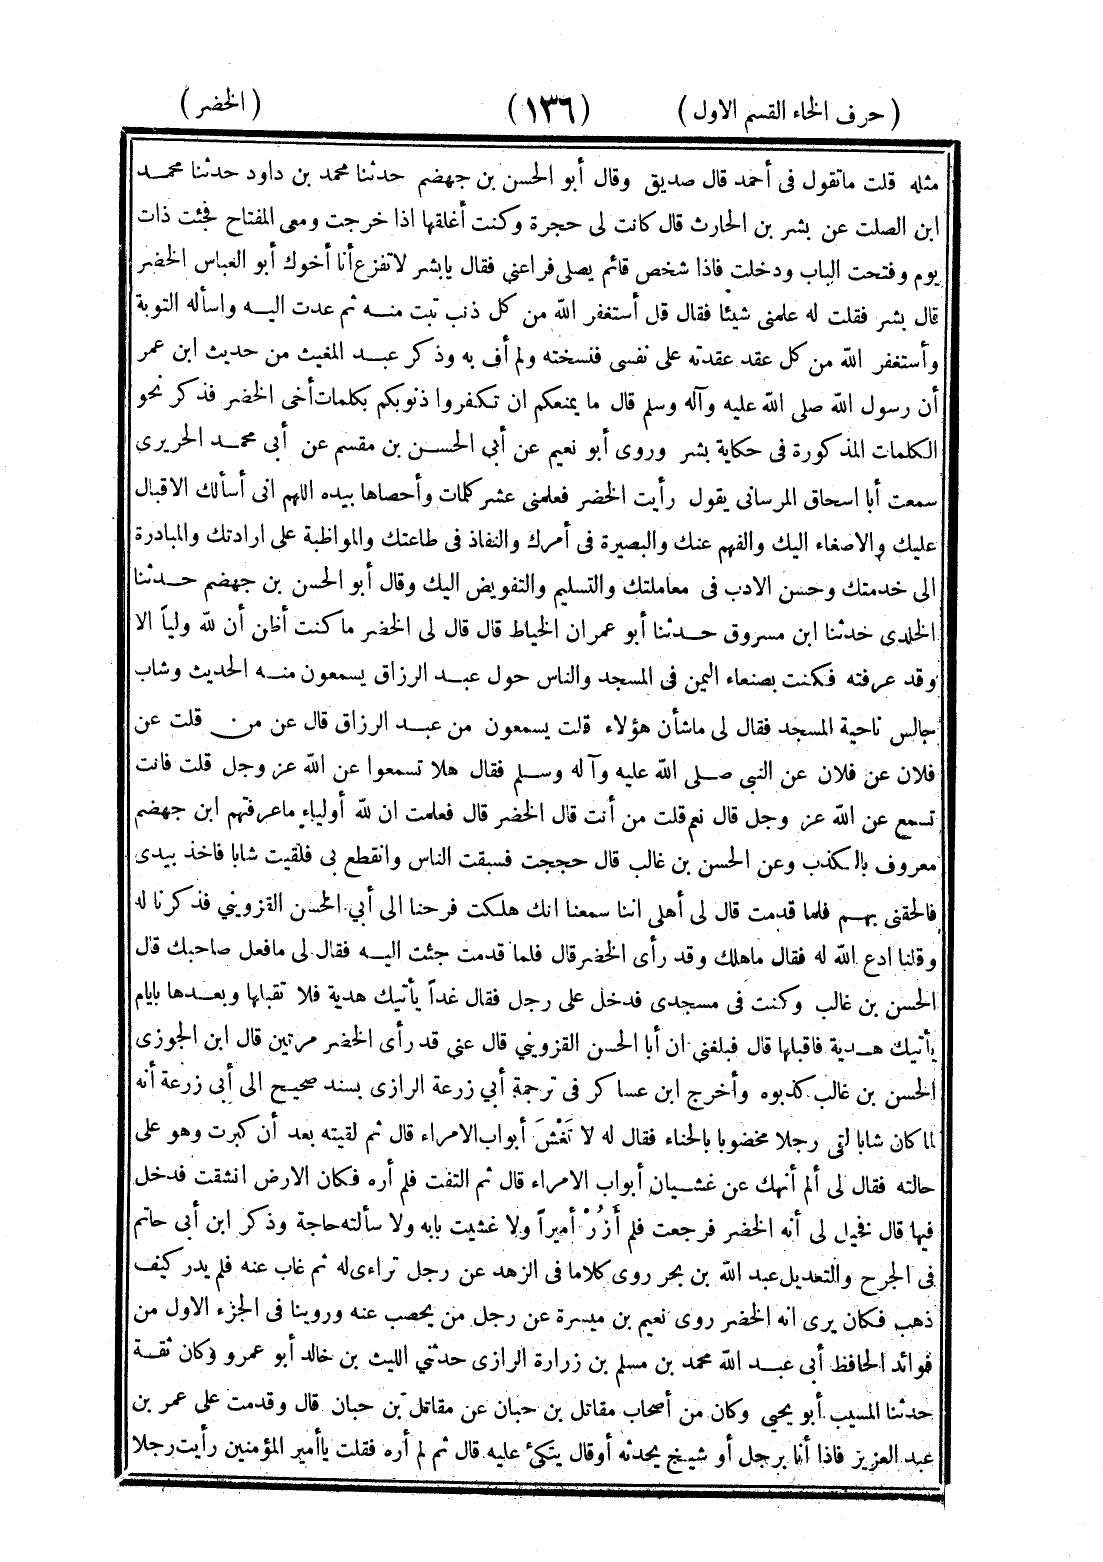 ( حرف الخاء القسم الاول ) (١٣٦) ( الخضر )
مثله قلت ماتقول فى أحمد قال صديق وقال أبو الحسن بن جهضم حدثنا محمد بن داود حدثنا محمد
ابن الصلت عن بشر بن الحارث قال كانت لى حجرة وكنت أغلقها اذا خرجت ومعى المفتاح فجئت ذات
يوم وفتحت الباب ودخلت فاذا شخص قائم يصلى فراعنى فقال يابشر لاتفزع أنا أخوك أبو العباس الخضر
قال بشر فقلت له علمنى شيئا فقال قل أستغفر الله من كل ذنب تبت منه ثم عدت اليه واسأله التوبة
وأستغفر الله من كل عقد عقدته على نفسى فنسخته ولم أف به وذكر عبد المغيث من حديث ابن عمر
أن رسول الله صلى الله عليه وآله وسلم قال ما يمنعكم ان تكفروا ذنوبكم بكلمات أخى الخضر فذكر نحو
الكلمات المذكورة فى حكاية بشر وروى أبو نعيم عن أبي الحسن بن مقسم عن أبى محمد الحريرى
سمعت أبا اسحاق المرسانى يقول رأيت الخضر فعلمنى عشر كلمات وأحصاها بيده اللهم انى أسألك الاقبال
عليك والاصغاء اليك والفهم عنك والبصيرة فى أمرك والنفاذ فى طاعتك والمواظبة على ارادتك والمبادرة
الى خدمتك وحسن الادب فى معاملتك والتسليم والتفويض اليك وقال أبو الحسن بن جهضم حدثنا
الخلدى حدثنا ابن مسروق حدثنا أبو عمران الخياط قال قال لى الخضر ماكنت أظن أن لله ولياً الا
وقد عرفته فكنت بصنعاء اليمن فى المسجد والناس حول عبد الرزاق يسمعون منه الحديث وشاب
جالس ناحية المسجد فقال لى ماشأن هؤلاء قلت يسمعون من عبد الرزاق قال عن من قلت عن
فلان عن فلان عن النبى صلى الله عليه وآله وسلم فقال هلا تسمعوا عن الله عز وجل قلت فانت
تسمع عن الله عز وجل قال نعم قلت من أنت قال الخضر قال فعلمت ان لله أولياء ماعرفتهم ابن جهضم
معروف بالكذب وعن الحسن بن غالب قال حججت فسبقت الناس وانقطع بى فلقيت شابا فاخذ بيدى
فالحقنى بهم فلما قدمت قال لى أهلى اننا سمعنا انك هلكت فرحنا الى أبي الحسن القزويني فذكرنا له
وقلنا ادع الله له فقال ماهلك وقد رأى الخضر قال فلما قدمت جئت اليه فقال لى مافعل صاحبك قال
الحسن بن غالب وكنت فى مسجدى فدخل على رجل فقال غداً يأتيك هدية فلا تقبلها وبعدها بايام
يأتيك هدية فاقبلها قال فبلغني ان أبا الحسن القزويني قال عنى قد رأى الخضر مرتين قال ابن الجوزى
الحسن بن غالب كذبوه وأخرج ابن عساكر فى ترجمة أبي زرعة الرازى بسند صحيح الى أبى زرعة أنه
لما كان شابا لقى رجلا مخضوبا بالحناء فقال له لا تَغْشَ أبواب الامراء قال ثم لقيته بعد أن كبرت وهو على
حالته فقال لى ألم أنهك عن غشيان أبواب الامراء قال ثم التفت فلم أره فكان الارض انشقت فدخل
فيها قال فخيل لى أنه الخضر فرجعت فلم أَزُرْ أميراً ولا غشيت بابه ولا سألته حاجة وذكر ابن أبى حاتم
فى الجرح والتعديل عبد الله بن بحر روى كلاما فى الزهد عن رجل تراءى له ثم غاب عنه فلم يدر كيف
ذهب فكان يرى انه الخضر روى نعيم بن ميسرة عن رجل من يحصب عنه وروينا فى الجزء الاول من
فوائد الحافظ أبى عبد الله محمد بن مسلم بن زرارة الرازى حدثني الليث بن خالد أبو عمرو وكان ثقة
حدثنا المسيب أبو يحيي وكان من أصحاب مقاتل بن حبان عن مقاتل بن حبان قال وقدمت على عمر بن
عبد العزيز فاذا أنا برجل أو شيخ يحدثه أوقال يتكئ عليه قال ثم لم أره فقلت ياأمير المؤمنين رأيت رجلا